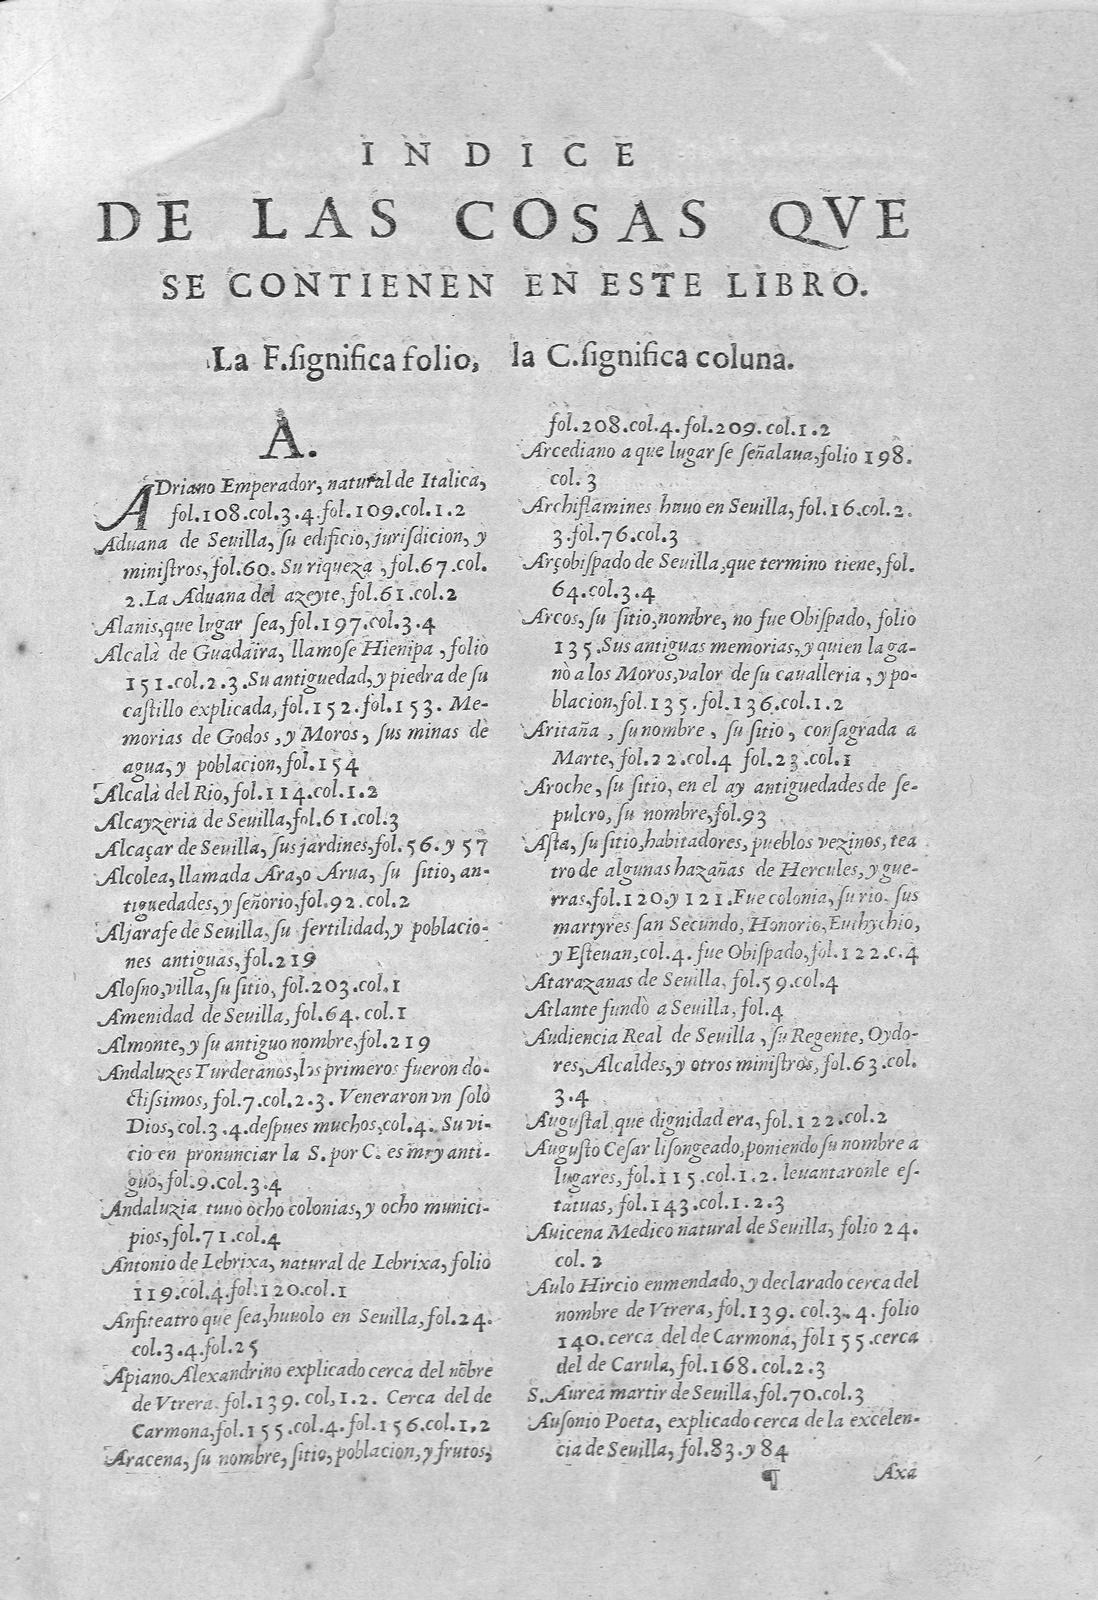 INDICE
DE LAS COSAS QVE
SE CONTIENEN EN ESTE LIBRO.
La F.ſignifica folio, la C.ſignifica coluna.
A.
ADriano Emperador, natural de Italica,
fol.108.col.3.4.fol.109.col.1.2
Aduana de Seuilla, ſu edificio, juriſdicion, y
miniſtros, fol.60. Su riqueza, fol.67.col.
2.La Aduana del azeyte, fol.61.col.2
Alanis, que lugar ſea, fol.197.col.3.4
Alcalà de Guadaira, llamoſe Hienipa, folio
151.col.2.3.Su antiguedad, y piedra de ſu
caſtillo explicada, fol.152.fol.153. Me-
morias de Godos, y Moros, ſus minas de
agua, y poblacion, fol.154
Alcalà del Rio, fol.114.col.1.2
Alcayzeria de Seuilla, fol.61.col.3
Alcaçar de Seuilla, ſus jardines, fol.56.y 57
Alcolea, llamada Ara, o Arua, ſu ſitio, an-
tiguedades, y ſeñorio, fol.92.col.2
Aljarafe de Seuilla, ſu fertilidad, y poblacio-
nes antiguas, fol.219
Aloſno, villa, ſu ſitio, fol.203.col.1
Amenidad de Seuilla, fol.64.col.1
Almonte, y ſu antiguo nombre, fol.219
Andaluzes Turdetanos, los primeros fueron do-
ctiſsimos, fol.7.col.2.3. Veneraron vn ſolo
Dios, col.3.4.deſpues muchos, col.4. Su vi-
cio en pronunciar la S. por C. es muy anti-
guo, fol.9.col.3.4
Andaluzia tuuo ocho colonias, y ocho munici-
pios, fol.71.col.4
Antonio de Lebrixa, natural de Lebrixa, folio
119.col.4.fol.120.col.1
Anfiteatro que ſea, huuolo en Seuilla, fol.24.
col.3.4.fol.25
Apiano Alexandrino explicado cerca del nõbre
de Vtrera, fol.139. col, 1.2. Cerca del de
Carmona, fol.155.col.4.fol.156.col.1,2
Aracena, ſu nombre, ſitio, poblacion, y frutos,
fol.208.col.4.fol.209.col.1.2
Arcediano a que lugar ſe ſeñalaua, folio 198.
col.3
Archiflamines huuo en Seuilla, fol.16.col.2.
3.fol.76.col.3
Arçobiſpado de Seuilla, que termino tiene, fol.
64.col.3.4
Arcos, ſu ſitio, nombre, no fue Obiſpado, folio
135.Sus antiguas memorias, y quien la ga-
nò a los Moros, valor de ſu caualleria, y po-
blacion, fol.135.fol.136.col.1.2
Aritaña, ſu nombre, ſu ſitio, conſagrada a
Marte, fol.22.col.4 fol.23.col.1
Aroche, ſu ſitio, en el ay antiguedades de ſe-
pulcro, ſu nombre, fol.93
Aſta, ſu ſitio, habitadores, pueblos vezinos, tea
tro de algunas hazañas de Hercules, y gue-
rras, fol.120.y 121.Fue colonia, ſu rio, ſus
martyres ſan Secundo, Honorio, Euthychio,
y Eſteuan, col.4. fue Obiſpado, fol.122.c.4
Atarazanas de Seuilla, fol.59.col.4
Atlante fundò a Seuilla, fol.4
Audiencia Real de Seuilla, ſu Regente, Oydo-
res, Alcaldes, y otros miniſtros, fol.63.col.
3.4
Auguſtal que dignidad era, fol.122.col.2
Auguſto Ceſar liſongeado, poniendo ſu nombre a
lugares, fol.115.col.1.2. leuantaronle eſ-
tatuas, fol.143.col.1.2.3
Auicena Medico natural de Seuilla, folio 24.
col.2
Aulo Hircio enmendado, y declarado cerca del
nombre de Vtrera, fol.139. col.3.4. folio
140.cerca del de Carmona, fol155.cerca
del de Carula, fol.168.col.2.3
S. Aurea martir de Seuilla, fol.70.col.3
Auſonio Poeta, explicado cerca de la excelen-
cia de Seuilla, fol.83.y 84
¶ Axa